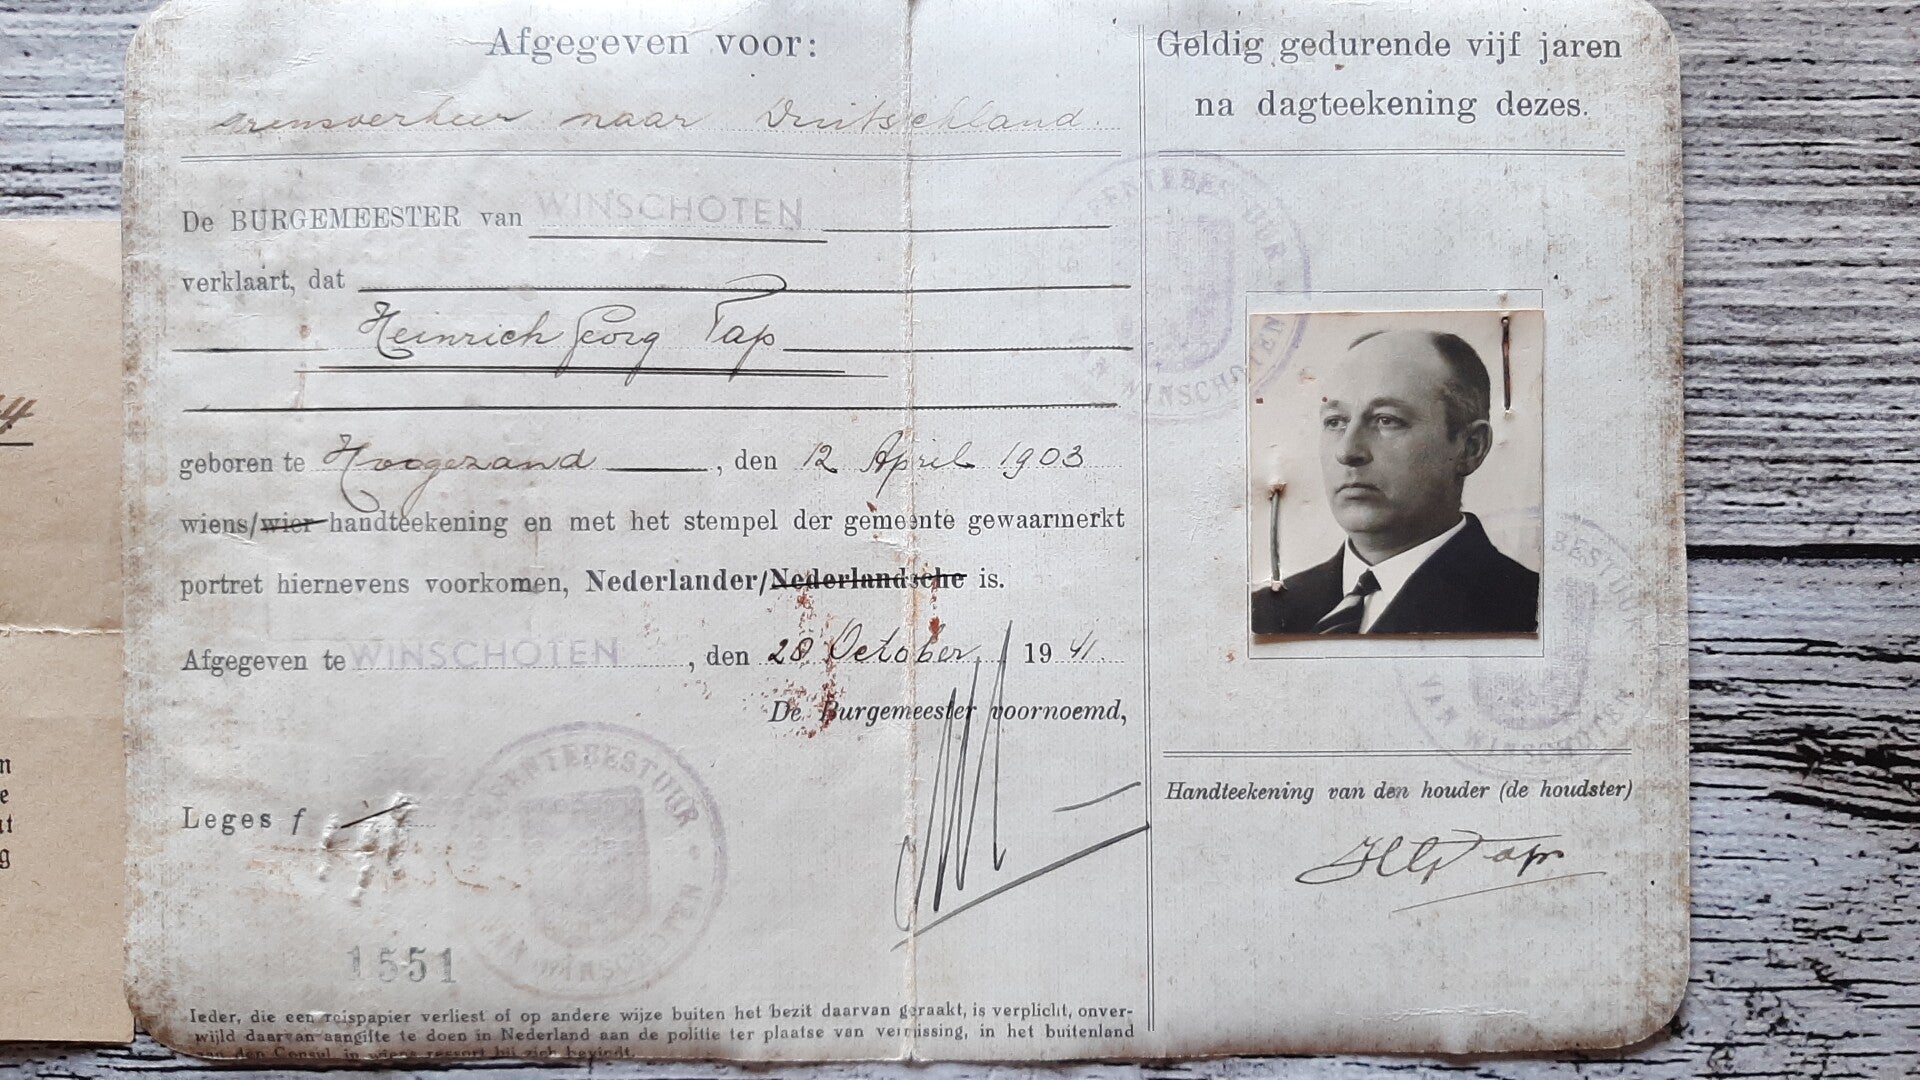 Afgegeven voor:
Grensverkeer naar Deutschland.
De BURGEMEESTER van WINSCHOTEN
verklaart, dat
Heinrich Georg Tap
geboren te Hoogezand, den 12 April 1903
wiens/wier handteekening en met het stempel der gemeente gewaarmerkt
portret hiernevens voorkomen, Nederlander/Nederlandsche is.
Afgegeven te WINSCHOTEN, den 28 October 1941.
De Burgemeester voornoemd,
Leges f
1551
Ieder, die een reispapier verliest of op andere wijze buiten het bezit daarvan geraakt, is verplicht, onver-
wijld daarvan aangifte te doen in Nederland aan de politie ter plaatse van vermissing, in het buitenland
aan den Consul, in wiens ressort hij zich bevindt.
Geldig gedurende vijf jaren
na dagteekening dezes.
GEMEENTEBESTUUR VAN WINSCHOTEN
GEMEENTEBESTUUR VAN WINSCHOTEN
GEMEENTEBESTUUR VAN WINSCHOTEN
Handteekening van den houder (de houdster)
HGTap